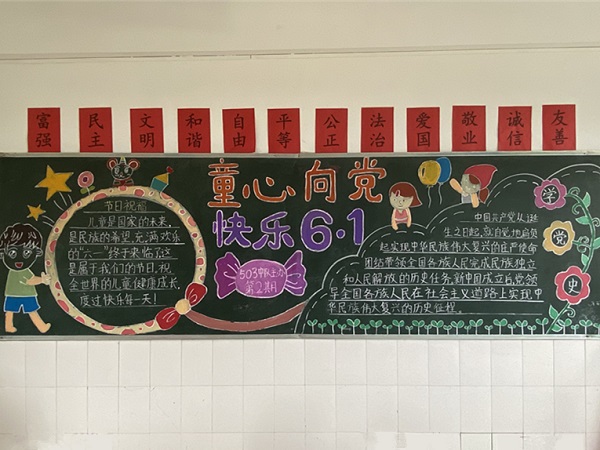 富强
民主
文明
和谐
自由
平等
公正
法治
爱国
敬业
诚信
友善
童心向党
快乐6·1
503中队主办
第2期
节日祝福
儿童是国家的未来,
是民族的希望,充满欢乐
的“六一”终于来临了,这
是属于我们的节日,祝
全世界的儿童健康成长,
度过快乐每一天!
中国共产党从诞
生之日起,就自觉地肩负
起实现中华民族伟大复兴的庄严使命
团结带领全国各族人民完成民族独立
和人民解放的历史任务,新中国成立后,党领
导全国各族人民在社会主义道路上实现中
华民族伟大复兴的历史征程.
学
党
史